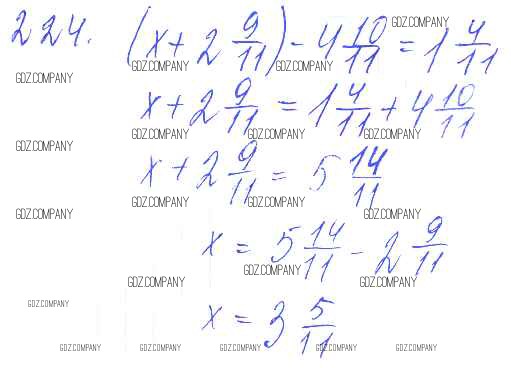 224. (x + 2 9/11) - 4 10/11 = 1 4/11
x + 2 9/11 = 1 4/11 + 4 10/11
x + 2 9/11 = 5 14/11
x = 5 14/11 - 2 9/11
x = 3 5/11
GDZ.COMPANY
GDZ.COMPANY GDZ.COMPANY
GDZ.COMPANY
GDZ.COMPANY GDZ.COMPANY GDZ.COMPANY
GDZ.COMPANY
GDZ.COMPANY GDZ.COMPANY GDZ.COMPANY
GDZ.COMPANY
GDZ.COMPANY
GDZ.COMPANY GDZ.COMPANY
GDZ.COMPANY
GDZ.COMPANY GDZ.COMPANY GDZ.COMPANY GDZ.COMPANY GDZ.COMPANY